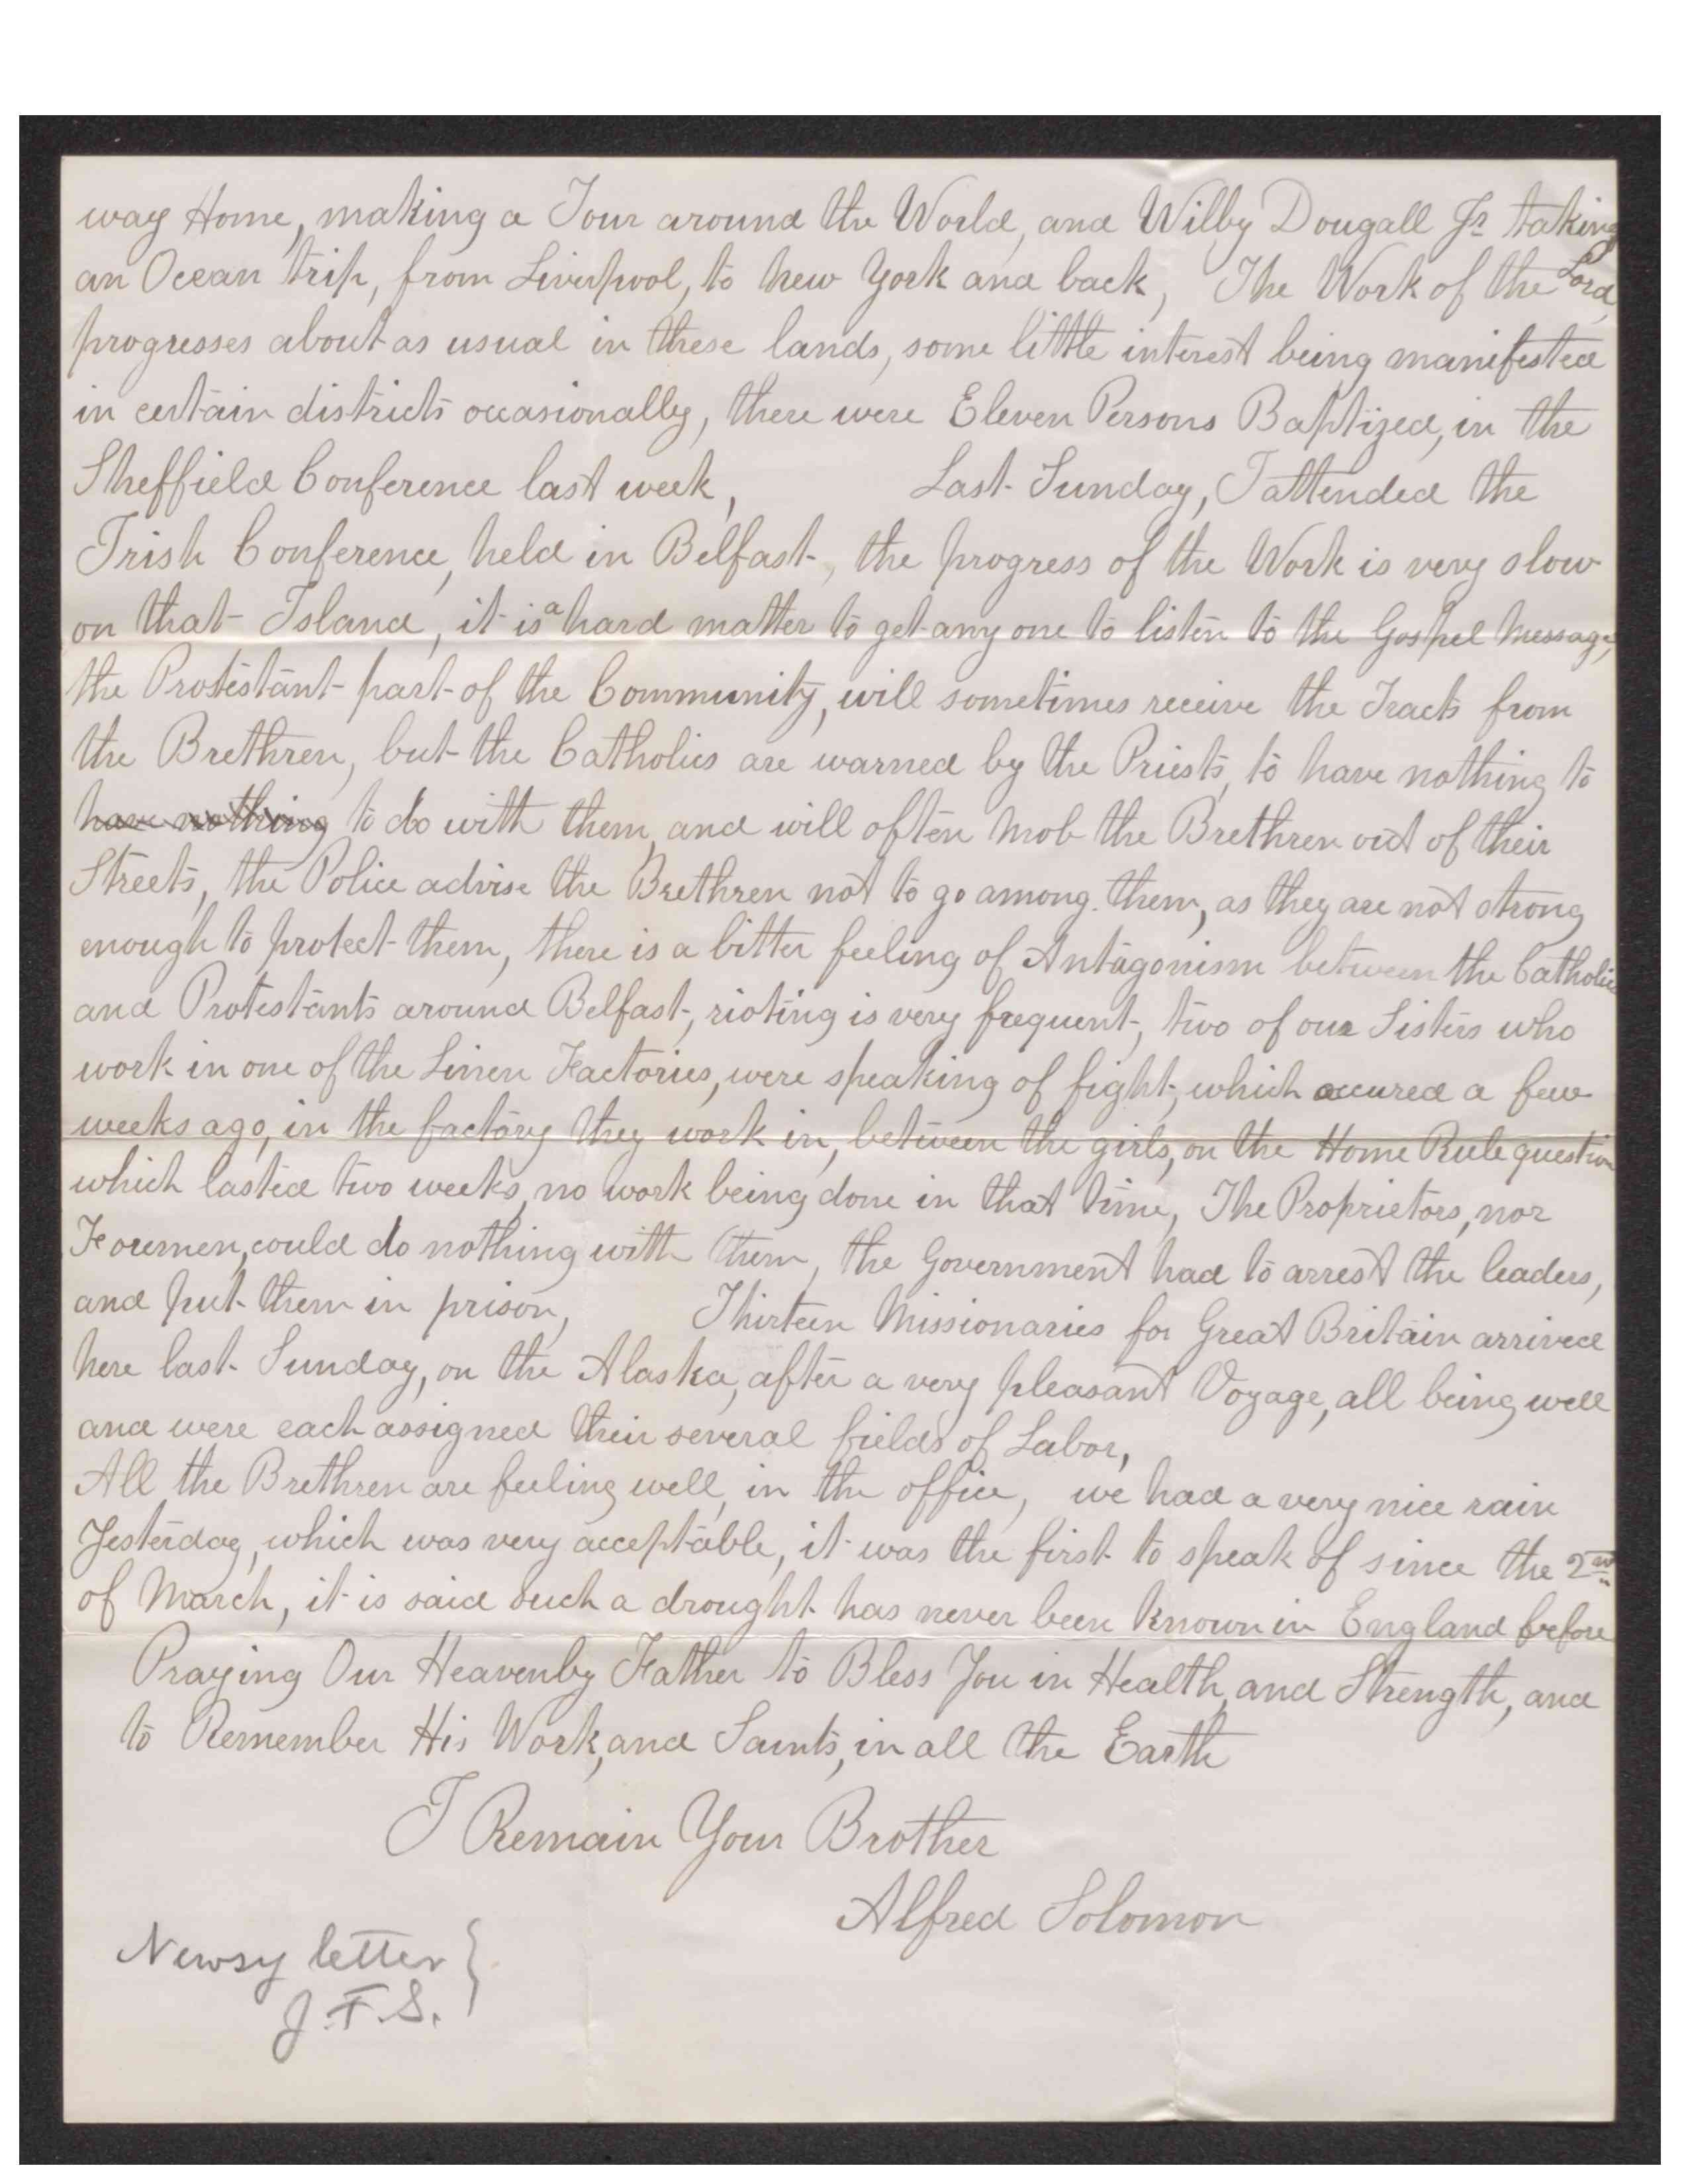 way Home, making a Tour around the World, and Wilby Dougall Jr taking
an Ocean trip, from Liverpool, to New York and back, The Work of the Lord,
progresses about as usual in these lands, some little interest being manifested
in certain districts occasionally, there were Eleven Persons Baptized, in the
Sheffield Conference last week, Last Sunday, I attended the
Irish Conference, held in Belfast, the progress of the Work is very slow
on that Island, it is a hard matter to get any one to listen to the Gospel Message,
the Protestant part of the Community, will sometimes receive the Tracts from
the Brethren, but the Catholics are warned by the Priests, to have nothing to
have nothing to do with them, and will often Mob the Brethren out of their
Streets, the Police advise the Brethren not to go among them, as they are not strong
enough to protect them, there is a bitter feeling of Antagonism between the Catholics
and Protestants around Belfast, rioting is very frequent, two of our Sisters who
work in one of the Linen Factories, were speaking of fight, which occured a few
weeks ago, in the factory they work in, between the girls, on the Home Rule question
which lasted two weeks, no work being done in that time, The Proprietors, nor
Foremen, could do nothing with them, the Government had to arrest the leaders,
and put them in prison, Thirteen Missionaries for Great Britain arrived
here last Sunday, on the Alaska, after a very pleasant Voyage, all being well
and were each assigned their several fields of Labor,
All the Brethren are feeling well, in the office, we had a very nice rain
Yesterday, which was very acceptable, it was the first to speak of since the 2nd
of March, it is said such a drought has never been known in England before
Praying Our Heavenly Father to Bless You in Health, and Strength, and
to Remember His Work, and Saints, in all the Earth
I Remain Your Brother
Alfred Solomon
Newsy letter }
J.F.S.